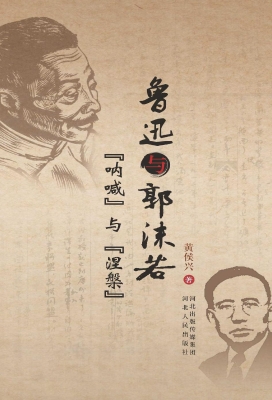 鲁迅与郭沫若
『呐喊』与『涅槃』
黄侯兴 著
河北出版传媒集团
河北人民出版社